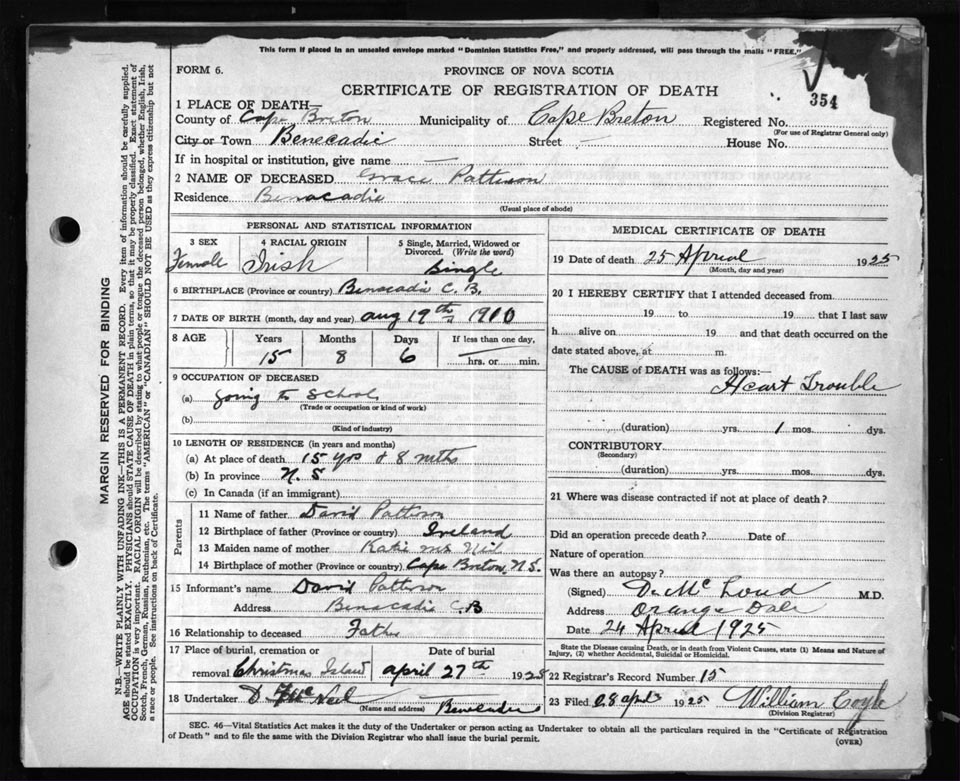 This form if placed in an unsealed envelope marked "Dominion Statistics Free," and properly addressed, will pass through the mails "FREE."
FORM 6.
PROVINCE OF NOVA SCOTIA
CERTIFICATE OF REGISTRATION OF DEATH
354
1 PLACE OF DEATH
County of Cape Breton Municipality of Cape Breton Registered No.
(For use of Registrar General only)
City or Town Benecadie Street — House No.
If in hospital or institution, give name —
2 NAME OF DECEASED Grace Pattison
Residence Benacadie
(Usual place of abode)
PERSONAL AND STATISTICAL INFORMATION
3 SEX Female
4 RACIAL ORIGIN Irish
5 Single, Married, Widowed or Divorced. (Write the word) Single
6 BIRTHPLACE (Province or country) Benacadie C. B.
7 DATE OF BIRTH (month, day and year) aug 19th 1910
8 AGE Years Months Days If less than one day,
15 8 6 hrs. or min.
9 OCCUPATION OF DECEASED
(a) going to School
(Trade or occupation or kind of work)
(b)
(Kind of industry)
10 LENGTH OF RESIDENCE (in years and months)
(a) At place of death 15 yrs & 8 mths
(b) In province N. S
(c) In Canada (if an immigrant)
Parents
11 Name of father David Pattison
12 Birthplace of father (Province or country) Ireland
13 Maiden name of mother Katie Mc Neil
14 Birthplace of mother (Province or country) Cape Breton, N S.
15 Informant's name David Patterson
Address Benacadie C.B
16 Relationship to deceased Father
17 Place of burial, cremation or removal Christmas Island
Date of burial april 27th 1925
18 Undertaker D. McNeil
(Name and address)
MEDICAL CERTIFICATE OF DEATH
19 Date of death 25 Aprial 1925
(Month, day and year)
20 I HEREBY CERTIFY that I attended deceased from
19 to 19 that I last saw
h alive on 19 and that death occurred on the
date stated above, at m.
The CAUSE of DEATH was as follows:—
Heart Trouble
(duration) yrs. 1 mos. dys.
CONTRIBUTORY
(Secondary)
(duration) yrs. mos. dys.
21 Where was disease contracted if not at place of death?
Did an operation precede death? Date of
Nature of operation
Was there an autopsy?
(Signed) Dr Mc Loud M.D.
Address Orange Dale
Date 24 Aprial 1925
State the Disease causing Death, or in death from Violent Causes, state (1) Means and Nature of
Injury, (2) whether Accidental, Suicidal or Homicidal.
22 Registrar's Record Number 15
23 Filed 28 april 1925 William Coyle
(Division Registrar)
SEC. 46—Vital Statistics Act makes it the duty of the Undertaker or person acting as Undertaker to obtain all the particulars required in the "Certificate of Registration
of Death" and to file the same with the Division Registrar who shall issue the burial permit.
(OVER)
MARGIN RESERVED FOR BINDING
N.B.—WRITE PLAINLY WITH UNFADING INK—THIS IS A PERMANENT RECORD. Every item of information should be carefully supplied.
AGE should be stated EXACTLY. PHYSICIANS should STATE CAUSE OF DEATH in plain terms, so that it may be properly classified. Exact statement of
OCCUPATION is very important. RACIAL ORIGIN will be described by stating to what people or tongue the deceased person belonged, whether English, Irish,
Scotch, French, German, Russian, Ruthenian, etc. The terms "AMERICAN" or "CANADIAN" SHOULD NOT BE USED as they express citizenship but not
a race or people. See instructions on back of Certificate.